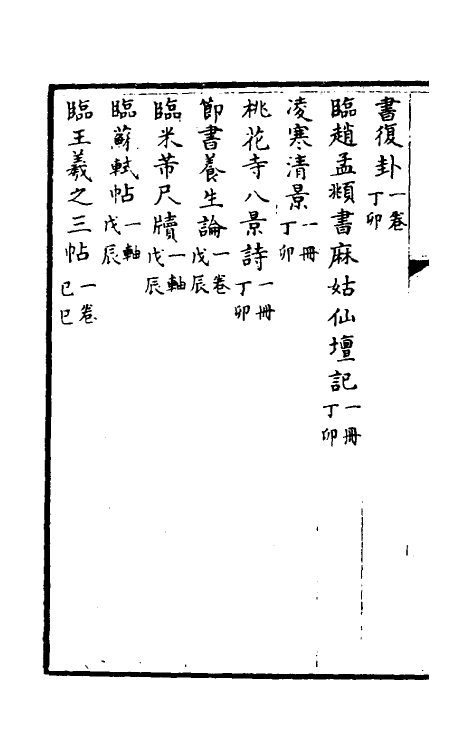 書復卦一卷丁卯
臨趙孟頫書麻姑仙壇記一冊丁卯
凌寒清景一冊丁卯
桃花寺八景詩一冊丁卯
節書養生論一卷戊辰
臨米芾尺牘一軸戊辰
臨蘇軾帖一軸戊辰
臨王羲之三帖一卷己巳